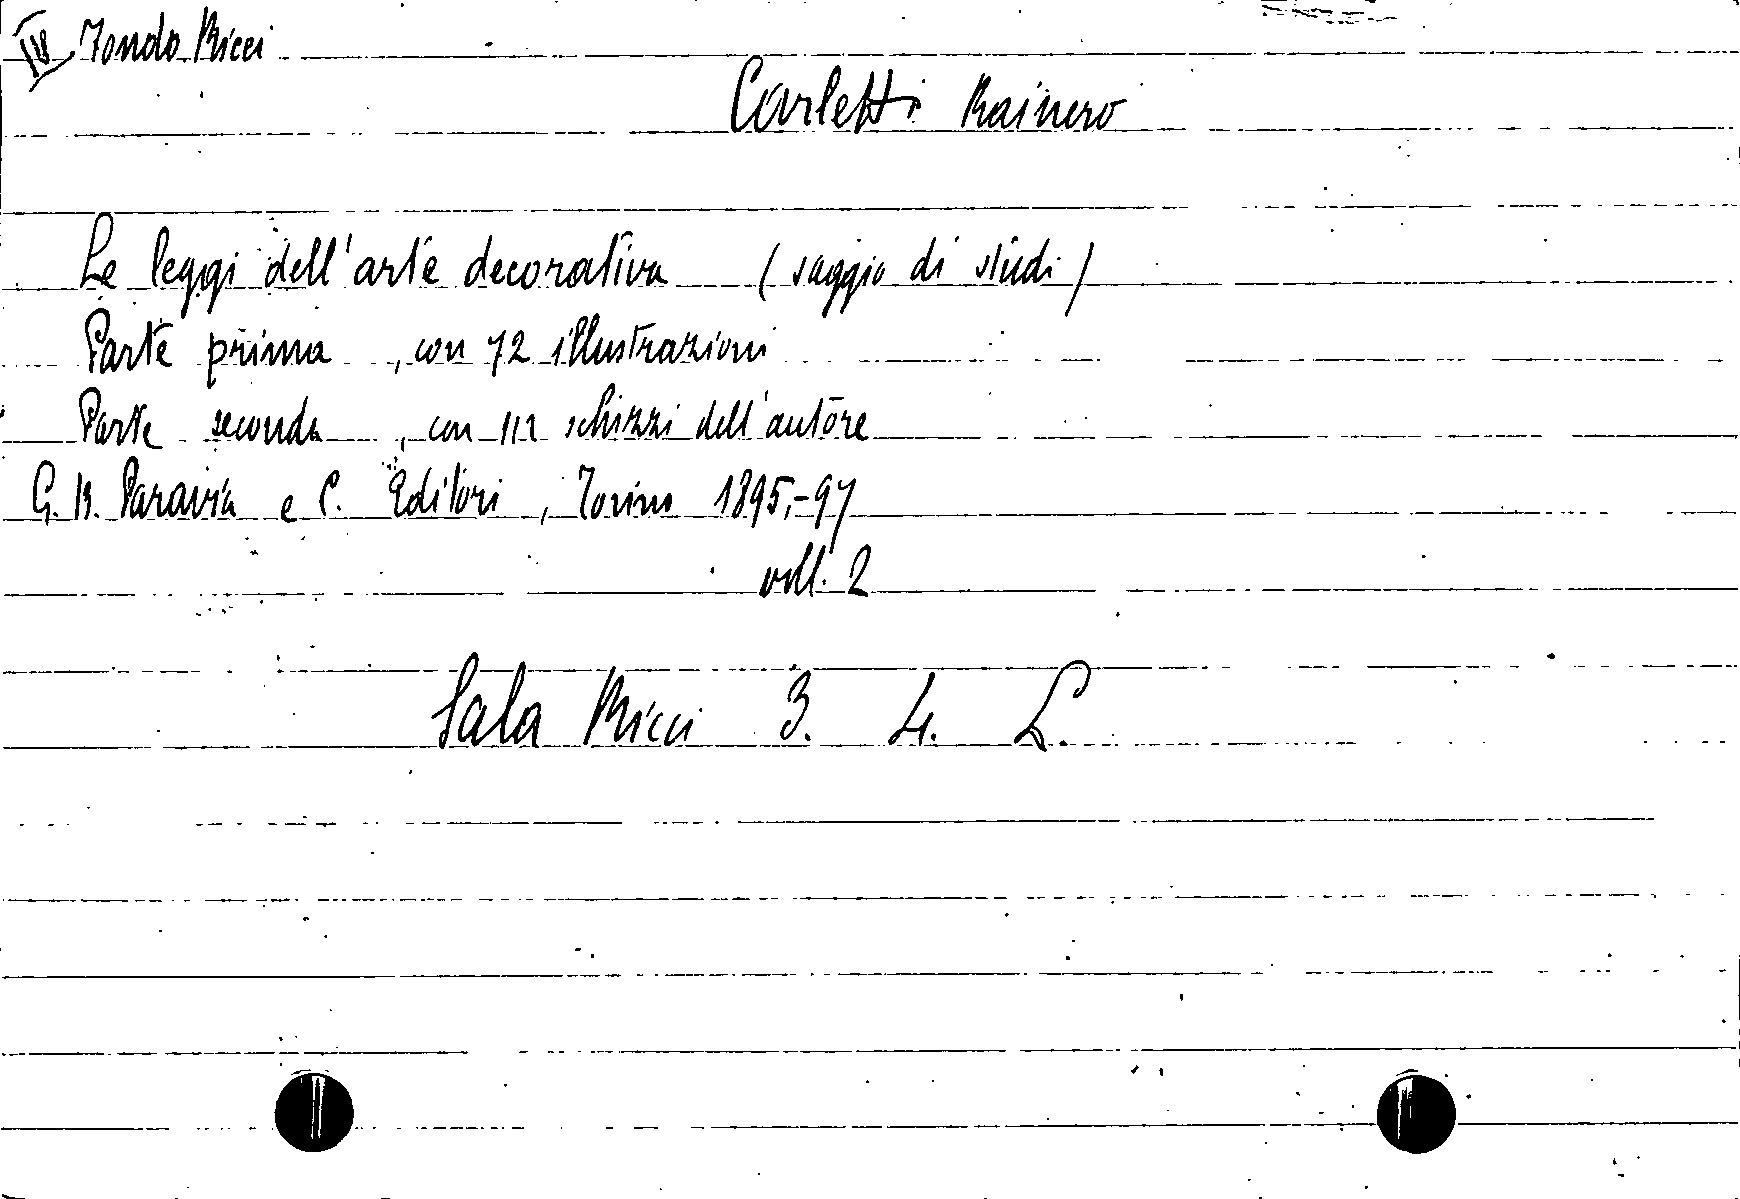 IV Fondo Ricci
Carletti Rainero
Le leggi dell'arte decorativa (saggio di studi)
Parte prima, con 72 illustrazioni
Parte seconda, con 112 schizzi dell'autore
G. B. Paravia e C. Editori, Torino 1895,-97
voll. 2
Sala Ricci 3. 4. L.